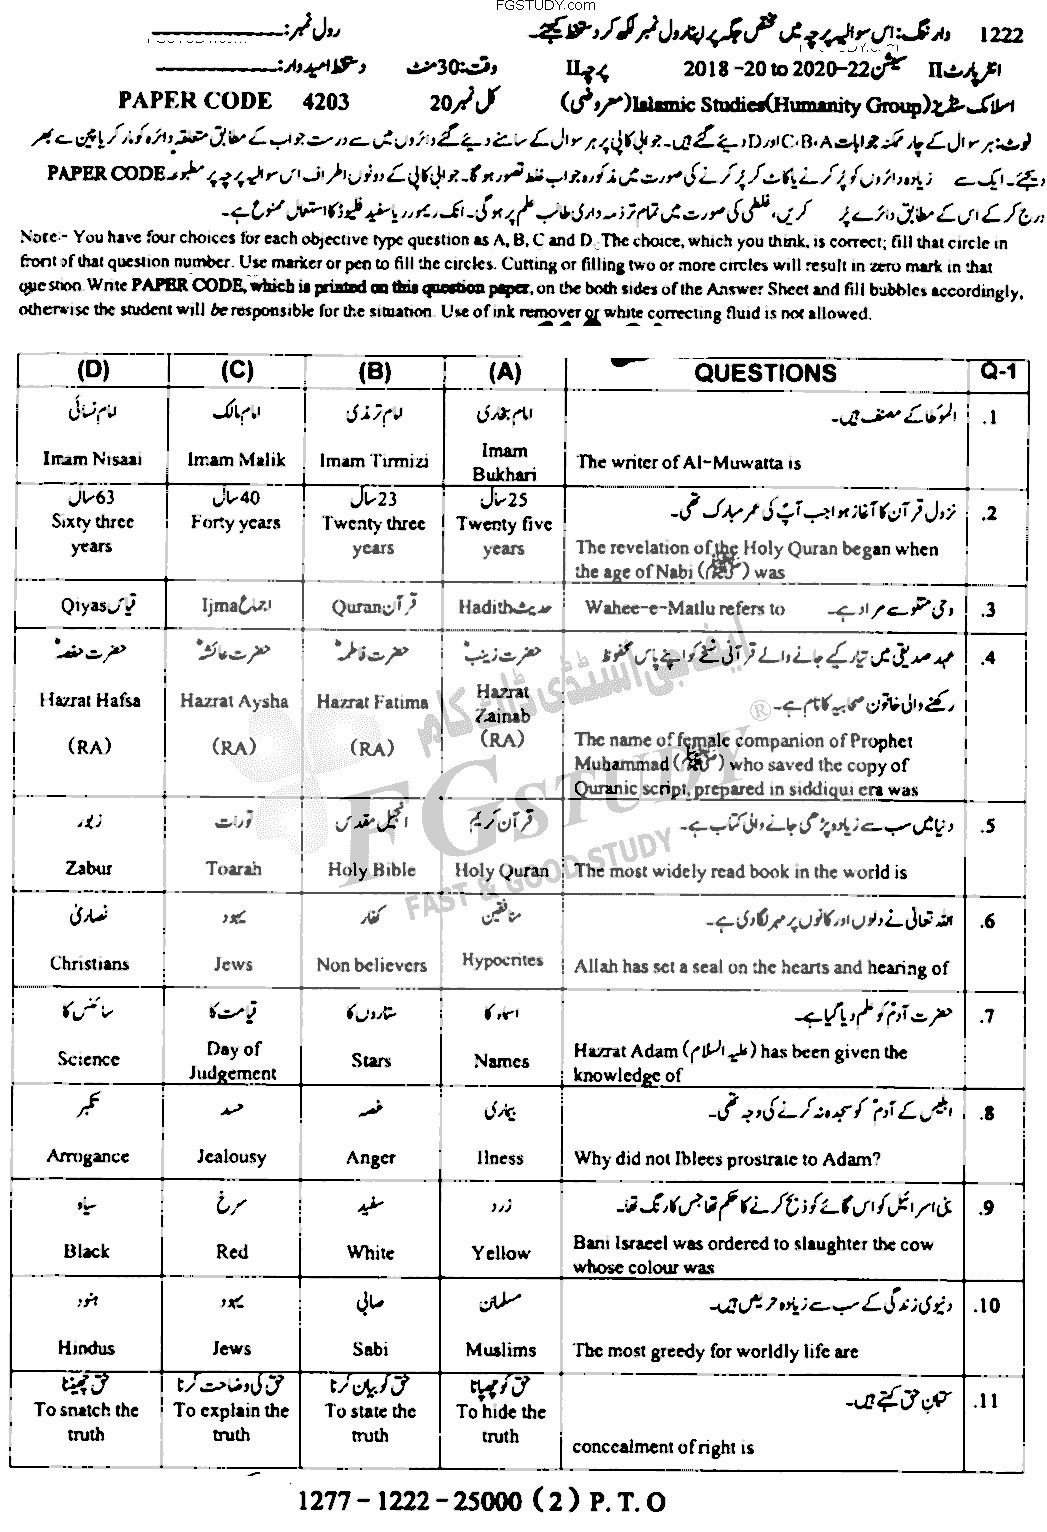 FGSTUDY.com
1222 وارننگ: اس سوالیہ پرچہ میں مختص جگہ پر اپنا رول نمبر لکھ کر دستخط کیجئے۔ رول نمبر:
انٹر پارٹ II سیشن 2018 -20 to 2020-22 پرچہ II وقت: 30 منٹ دستخط امیدوار:
اسلامک سٹڈیز Islamic Studies(Humanity Group) (معروضی) کل نمبر 20 PAPER CODE 4203
نوٹ: ہر سوال کے چار ممکنہ جوابات C، B، A اور D دیئے گئے ہیں۔ جوابی کاپی پر ہر سوال کے سامنے دیئے گئے دائروں میں سے درست جواب کے مطابق متعلقہ دائرہ کو مارکر یا پین سے بھر
دیجئے۔ ایک سے زیادہ دائروں کو پُر کرنے یا کاٹ کر پُر کرنے کی صورت میں مذکورہ جواب غلط تصور ہوگا۔ جوابی کاپی کے دونوں اطراف اس سوالیہ پرچہ پر مطبوعہ PAPER CODE
درج کر کے اس کے مطابق دائرے پُر کریں، غلطی کی صورت میں تمام تر ذمہ داری طالب علم پر ہوگی۔ انک ریموور یا سفید فلیوڈ کا استعمال ممنوع ہے۔
Note:- You have four choices for each objective type question as A, B, C and D. The choice, which you think, is correct; fill that circle in
front of that question number. Use marker or pen to fill the circles. Cutting or filling two or more circles will result in zero mark in that
question. Write PAPER CODE, which is printed on this question paper, on the both sides of the Answer Sheet and fill bubbles accordingly,
otherwise the student will be responsible for the situation. Use of ink remover or white correcting fluid is not allowed.
(D) (C) (B) (A) QUESTIONS Q-1
امام نسائی امام مالک امام ترمذی امام بخاری المؤطا کے مصنف ہیں۔ .1
Imam Nisaai Imam Malik Imam Tirmizi Imam Bukhari The writer of Al-Muwatta is
63 سال 40 سال 23 سال 25 سال نزول قرآن کا آغاز ہوا جب آپؐ کی عمر مبارک تھی۔ .2
Sixty three years Forty years Twenty three years Twenty five years The revelation of the Holy Quran began when
the age of Nabi (ﷺ) was
Qiyas قیاس Ijma اجماع Quran قرآن Hadith حدیث Wahee-e-Matlu refers to وحی متلو سے مراد ہے۔ .3
حضرت حفصہؓ حضرت عائشہؓ حضرت فاطمہؓ حضرت زینبؓ عہد صدیقی میں تیار کیے جانے والے قرآنی نسخے کو اپنے پاس محفوظ .4
رکھنے والی خاتون صحابیہ کا نام ہے۔
Hazrat Hafsa (RA) Hazrat Aysha (RA) Hazrat Fatima (RA) Hazrat Zainab (RA) The name of female companion of Prophet
Muhammad (ﷺ) who saved the copy of
Quranic script, prepared in siddiqui era was
زبور تورات انجیل مقدس قرآن کریم دنیا میں سب سے زیادہ پڑھی جانے والی کتاب ہے۔ .5
Zabur Toarah Holy Bible Holy Quran The most widely read book in the world is
نصاریٰ یہود کفار منافقین اللہ تعالیٰ نے دلوں اور کانوں پر مہر لگا دی ہے۔ .6
Christians Jews Non believers Hypocrites Allah has set a seal on the hearts and hearing of
سائنس کا قیامت کا ستاروں کا اسماء کا حضرت آدمؑ کو علم دیا گیا ہے۔ .7
Science Day of Judgement Stars Names Hazrat Adam (علیہ السلام) has been given the
knowledge of
تکبر حسد غصہ بیماری ابلیس کے آدمؑ کو سجدہ نہ کرنے کی وجہ تھی۔ .8
Arrogance Jealousy Anger Ilness Why did not Iblees prostrate to Adam?
سیاہ سرخ سفید زرد بنی اسرائیل کو اس گائے کو ذبح کرنے کا حکم تھا جس کا رنگ تھا۔ .9
Black Red White Yellow Bani Israeel was ordered to slaughter the cow
whose colour was
ہنود یہود صابی مسلمان دنیوی زندگی کے سب سے زیادہ حریص ہیں۔ .10
Hindus Jews Sabi Muslims The most greedy for worldly life are
حق چھیننا حق کی وضاحت کرنا حق کو بیان کرنا حق کو چھپانا کتمان حق کہتے ہیں۔ .11
To snatch the truth To explain the truth To state the truth To hide the truth concealment of right is
1277 – 1222 – 25000 ( 2 ) P. T. O
ایف جی اسٹڈی ڈاٹ کام
FGSTUDY ®
FAST & GOOD STUDY